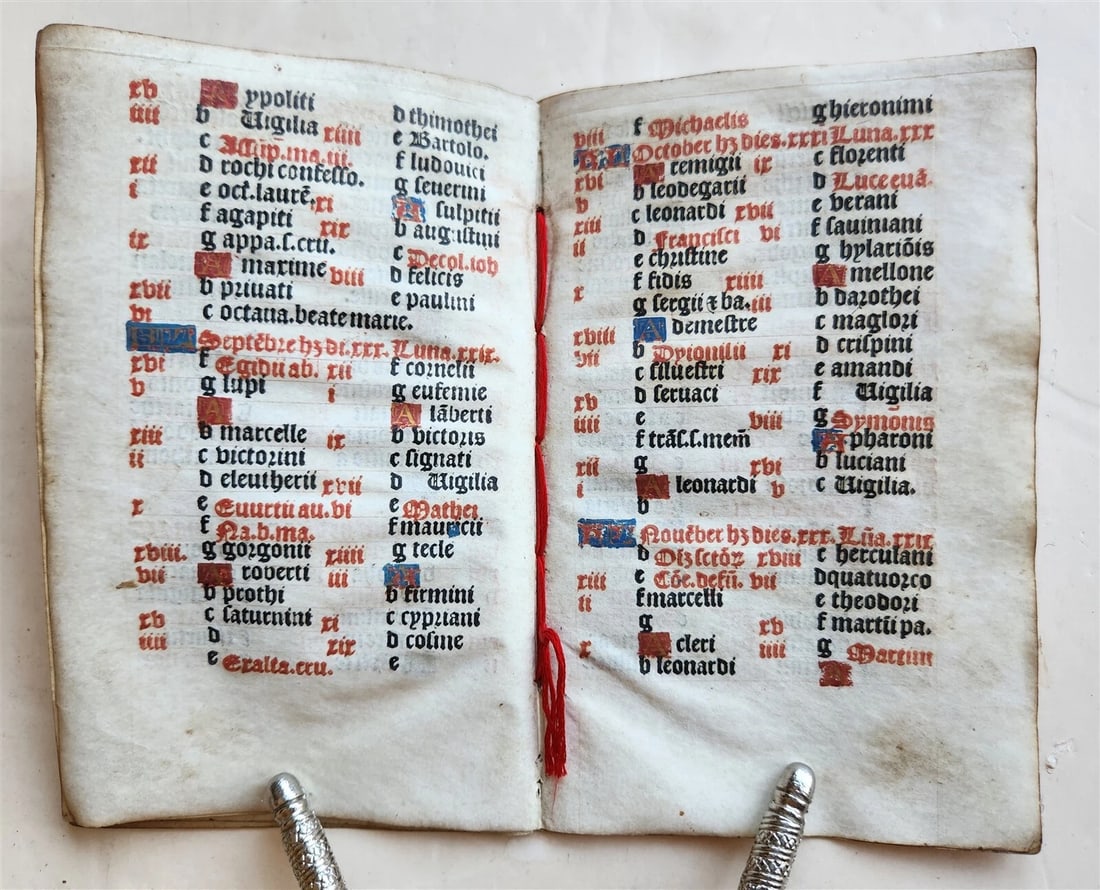 xv A ypoliti d thimothei
iiii b Vigilia xiiii e Bartolo.
c Assūp.ma.iii. f ludovici
xii d rochi confesso. g severini
i e oct.laurē. xi A sulpitii
f agapiti xix b augustini
ix g appa.s.cru. c Decol.ioh
A maxime viii d felicis
xvii b privati e paulini
vi c octava.beate marie.
KL Septēbre hꝫ di.xxx. Luna.xxix.
xvi f Egidii ab. xii f cornelii
v g lupi i g eufemie
A A lāberti
xiii b marcelle ix b victoris
ii c victorini c signati
d eleutherii xvii d Vigilia
x e Evurtii au. vi e Mathei
f Na.b.ma. f mauricii
xviii. g gorgonii xiiii g tecle
vii A roberti iii A
b prothi b firmini
xv c saturnini xi c cypriani
iiii d xix d cosme
e Exalta.cru. e
viii f Michaelis g hieronimi
KL October hꝫ dies.xxxi Luna.xxx
xvi A remigii ix c florenti
b leodegarii d Luce euā.
v c leonardi xvii e verani
xiii d Francisci vi f saviniani
ii e christine g hylariōis
f fidis xiiii A mellone
x g sergii ⁊ ba. iii b darothei
A demestre c maglori
xviii b Dyionisii xi d crispini
vii c silvestri xix e amandi
d servaci f Vigilia
xv e viii g Symonis
iiii f trās.s.mem̄ A pharoni
xii g xvi b luciani
i A leonardi v c Vigilia.
b
KL Novēber hꝫ dies.xxx. Lūa.xxix
d Oīz sctōꝝ xviii c herculani
xiii e Cōe.defū. vii d quatuor co
ii f marcelli e theodori
g xv f martii pa.
x A cleri iiii g Martini
b leonardi A